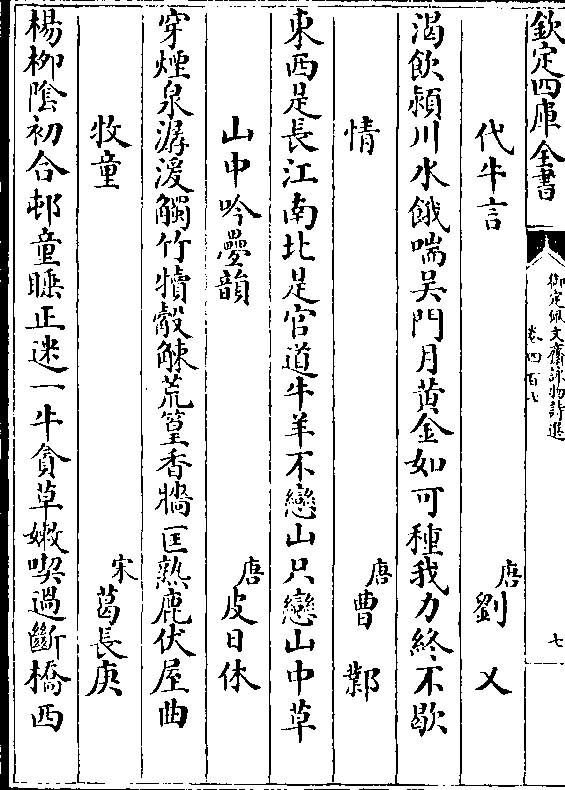 欽定四庫全書
御定佩文齋詠物詩選
卷四百八
七
代牛言
唐劉叉
渴飲潁川水餓喘吳門月黃金如可種我力終不歇
情
唐曹鄴
東西是長江南北是官道牛羊不戀山只戀山中草
山中吟疊韻
唐皮日休
穿煙泉潺湲觸竹犢觳觫荒篁香牆匡熟鹿伏屋曲
牧童
宋葛長庚
楊柳陰初合邨童睡正迷一牛貪草嫩喫過斷橋西